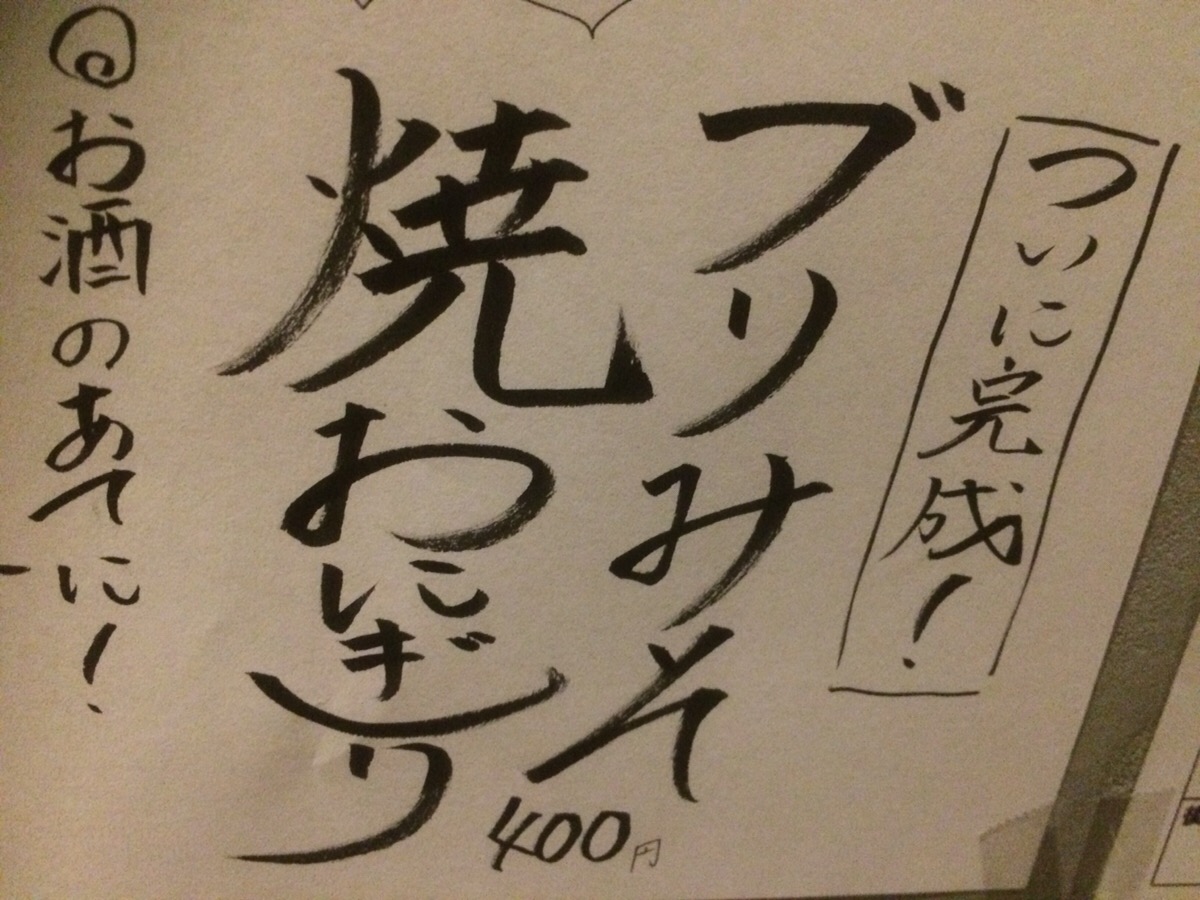 ついに完成!
ブリみそ
焼おにぎり
400円
◎お酒のあてに!